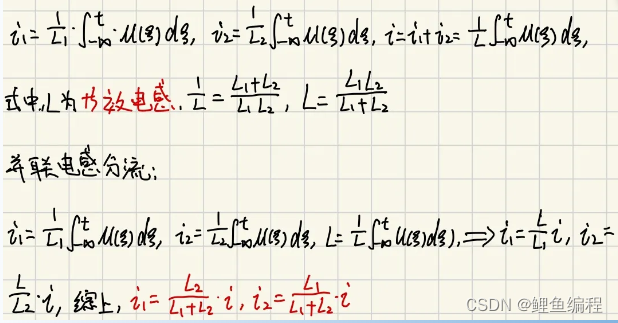 i₁=1/L₁·∫_{-∞}^{t}·u(ξ)dξ, i₂=1/L₂∫_{-∞}^{t}u(ξ)dξ, i=i₁+i₂=1/L∫_{-∞}^{t}u(ξ)dξ,
式中,L为等效电感, 1/L=(L₁+L₂)/(L₁L₂), L=(L₁L₂)/(L₁+L₂)
并联电感分流:
i₁=1/L₁∫_{-∞}^{t}u(ξ)dξ, i₂=1/L₂∫_{-∞}^{t}u(ξ)dξ, L=1/L∫_{-∞}^{t}u(ξ)dξ), ⟹i₁=L/L₁i, i₂=
L/L₂·i, 综上, i₁=L₂/(L₁+L₂)·i, i₂=L₁/(L₁+L₂)·i
CSDN @鲤鱼编程